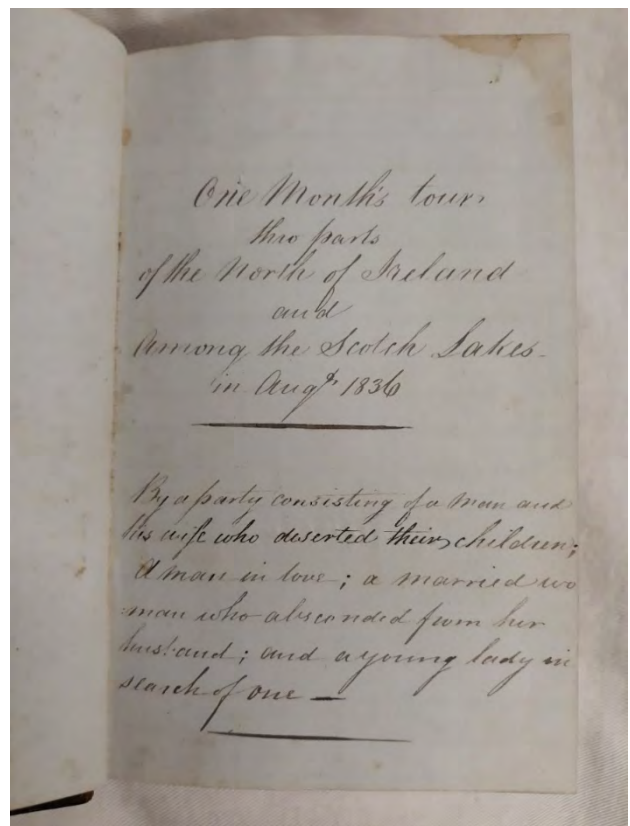 One Month's tour
thro parts
of the North of Ireland
and
Among the Scotch Lakes -
in Augt 1836
By a party consisting of a man and
his wife who deserted their children;
A man in love; a married wo
man who absconded from her
husband; and a young lady in
search of one —